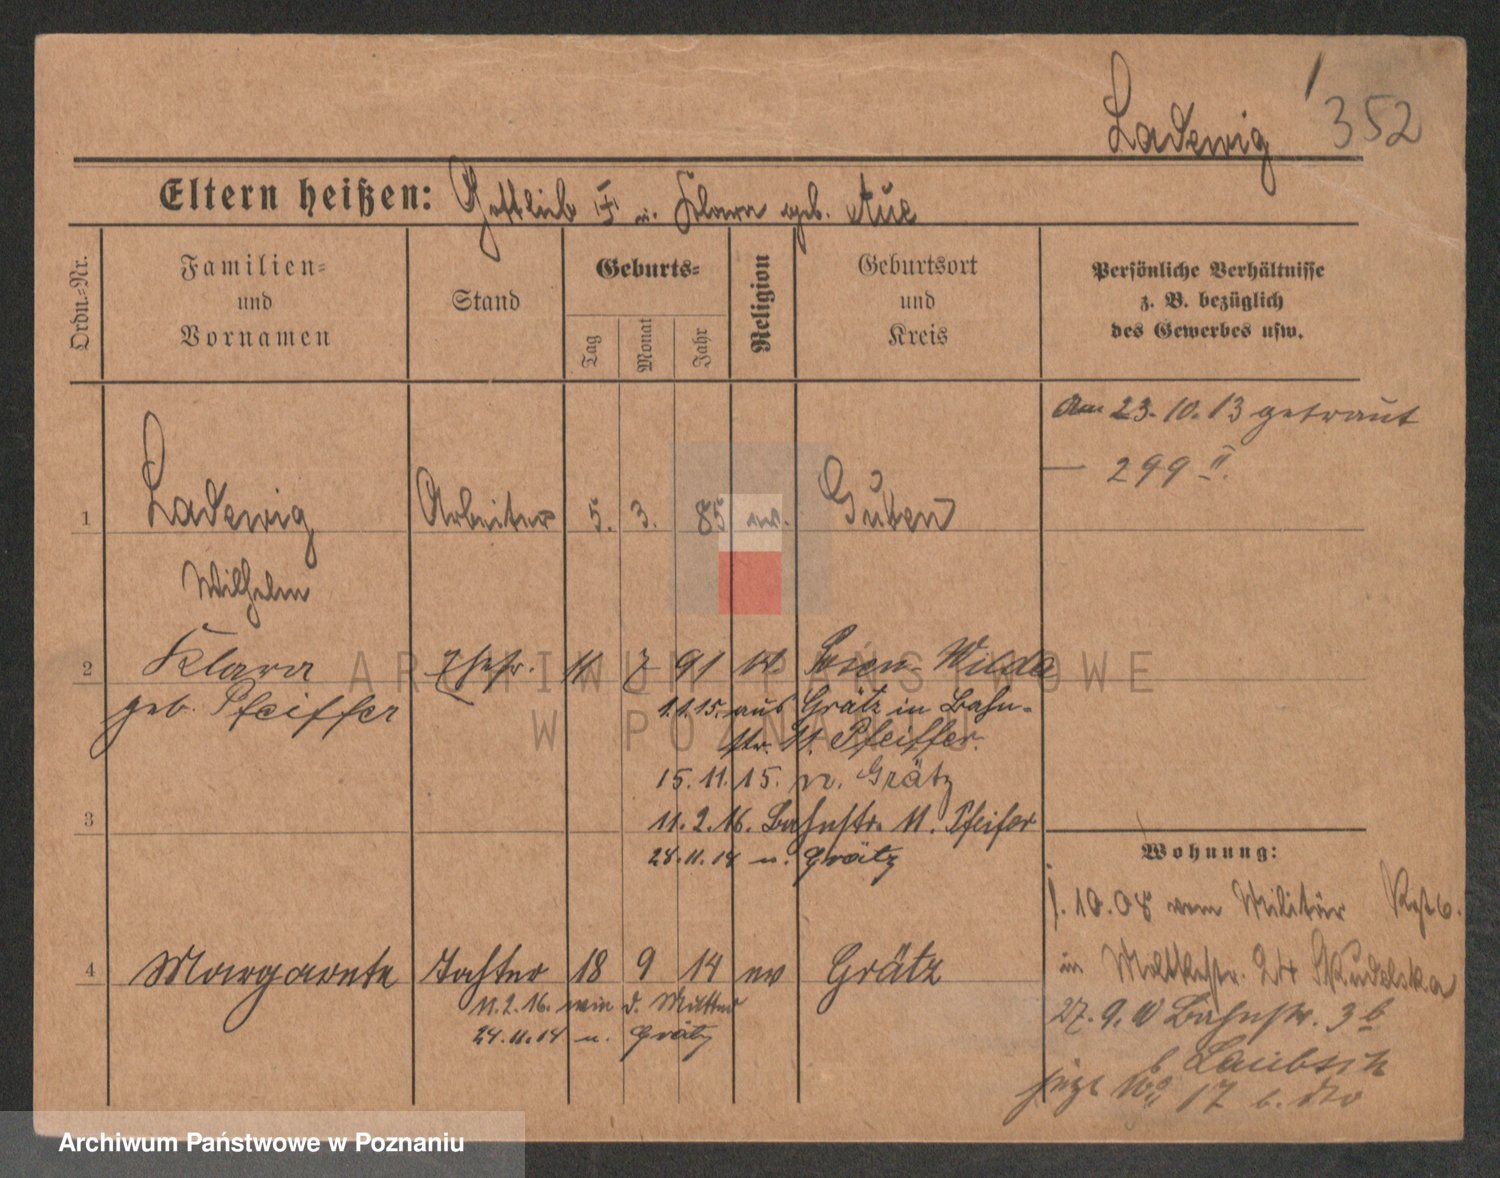 Ladewig 352
Eltern heißen: Gottlieb u. Klara geb. Aue
Ordn.-Nr.
Familien-
und
Vornamen
Stand
Geburts-
Tag
Monat
Jahr
Religion
Geburtsort
und
Kreis
Persönliche Verhältnisse
z. B. bezüglich
des Gewerbes usw.
Am 23.10.13 getraut
299 II.
1 Ladewig Arbeiter 5. 3. 85 ev. Guben
Wilhelm
2 Klara Ehefr. 11 7 91 Posen-Wilda
geb. Pfeiffer
1.1.15. aus Grätz in Bahn-
str. 11. Pfeiffer.
15.11.15. n. Grätz
3
11.2.16. Bahnstr. 11. Pfeifer
24.11.14 n. Grätz
Wohnung:
1.10.08 vom Militär
in Moltkestr. 24
4 Margarete Tochter 18 9 14 ev Grätz
11.2.16. wie d. Mutter
24.11.14 n. Grätz
27.9. Bahnstr. 3b
b Laubsch
jetzt No 17 b. dto
ARCHIWUM PAŃSTWOWE
W POZNANIU
Archiwum Państwowe w Poznaniu